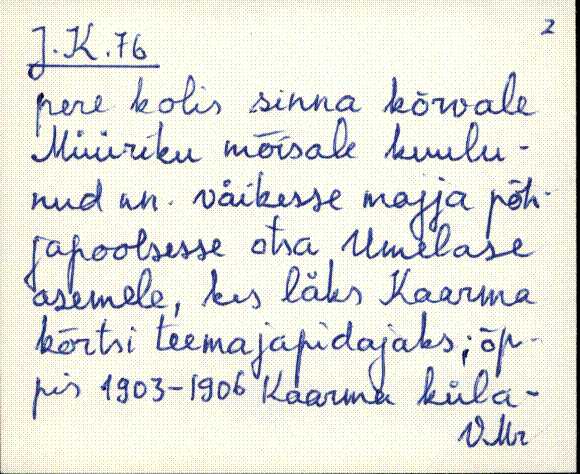 2
J.K.76
pere kolis sinna kõrvale
Müüriku mõisale kuulu-
nud nn. väikesse majja põh-
japoolsesse otsa Umelase
asemele, kes läks Kaarma
kõrtsi teemajapidajaks; õp-
pis 1903-1906 Kaarma küla-
VMr